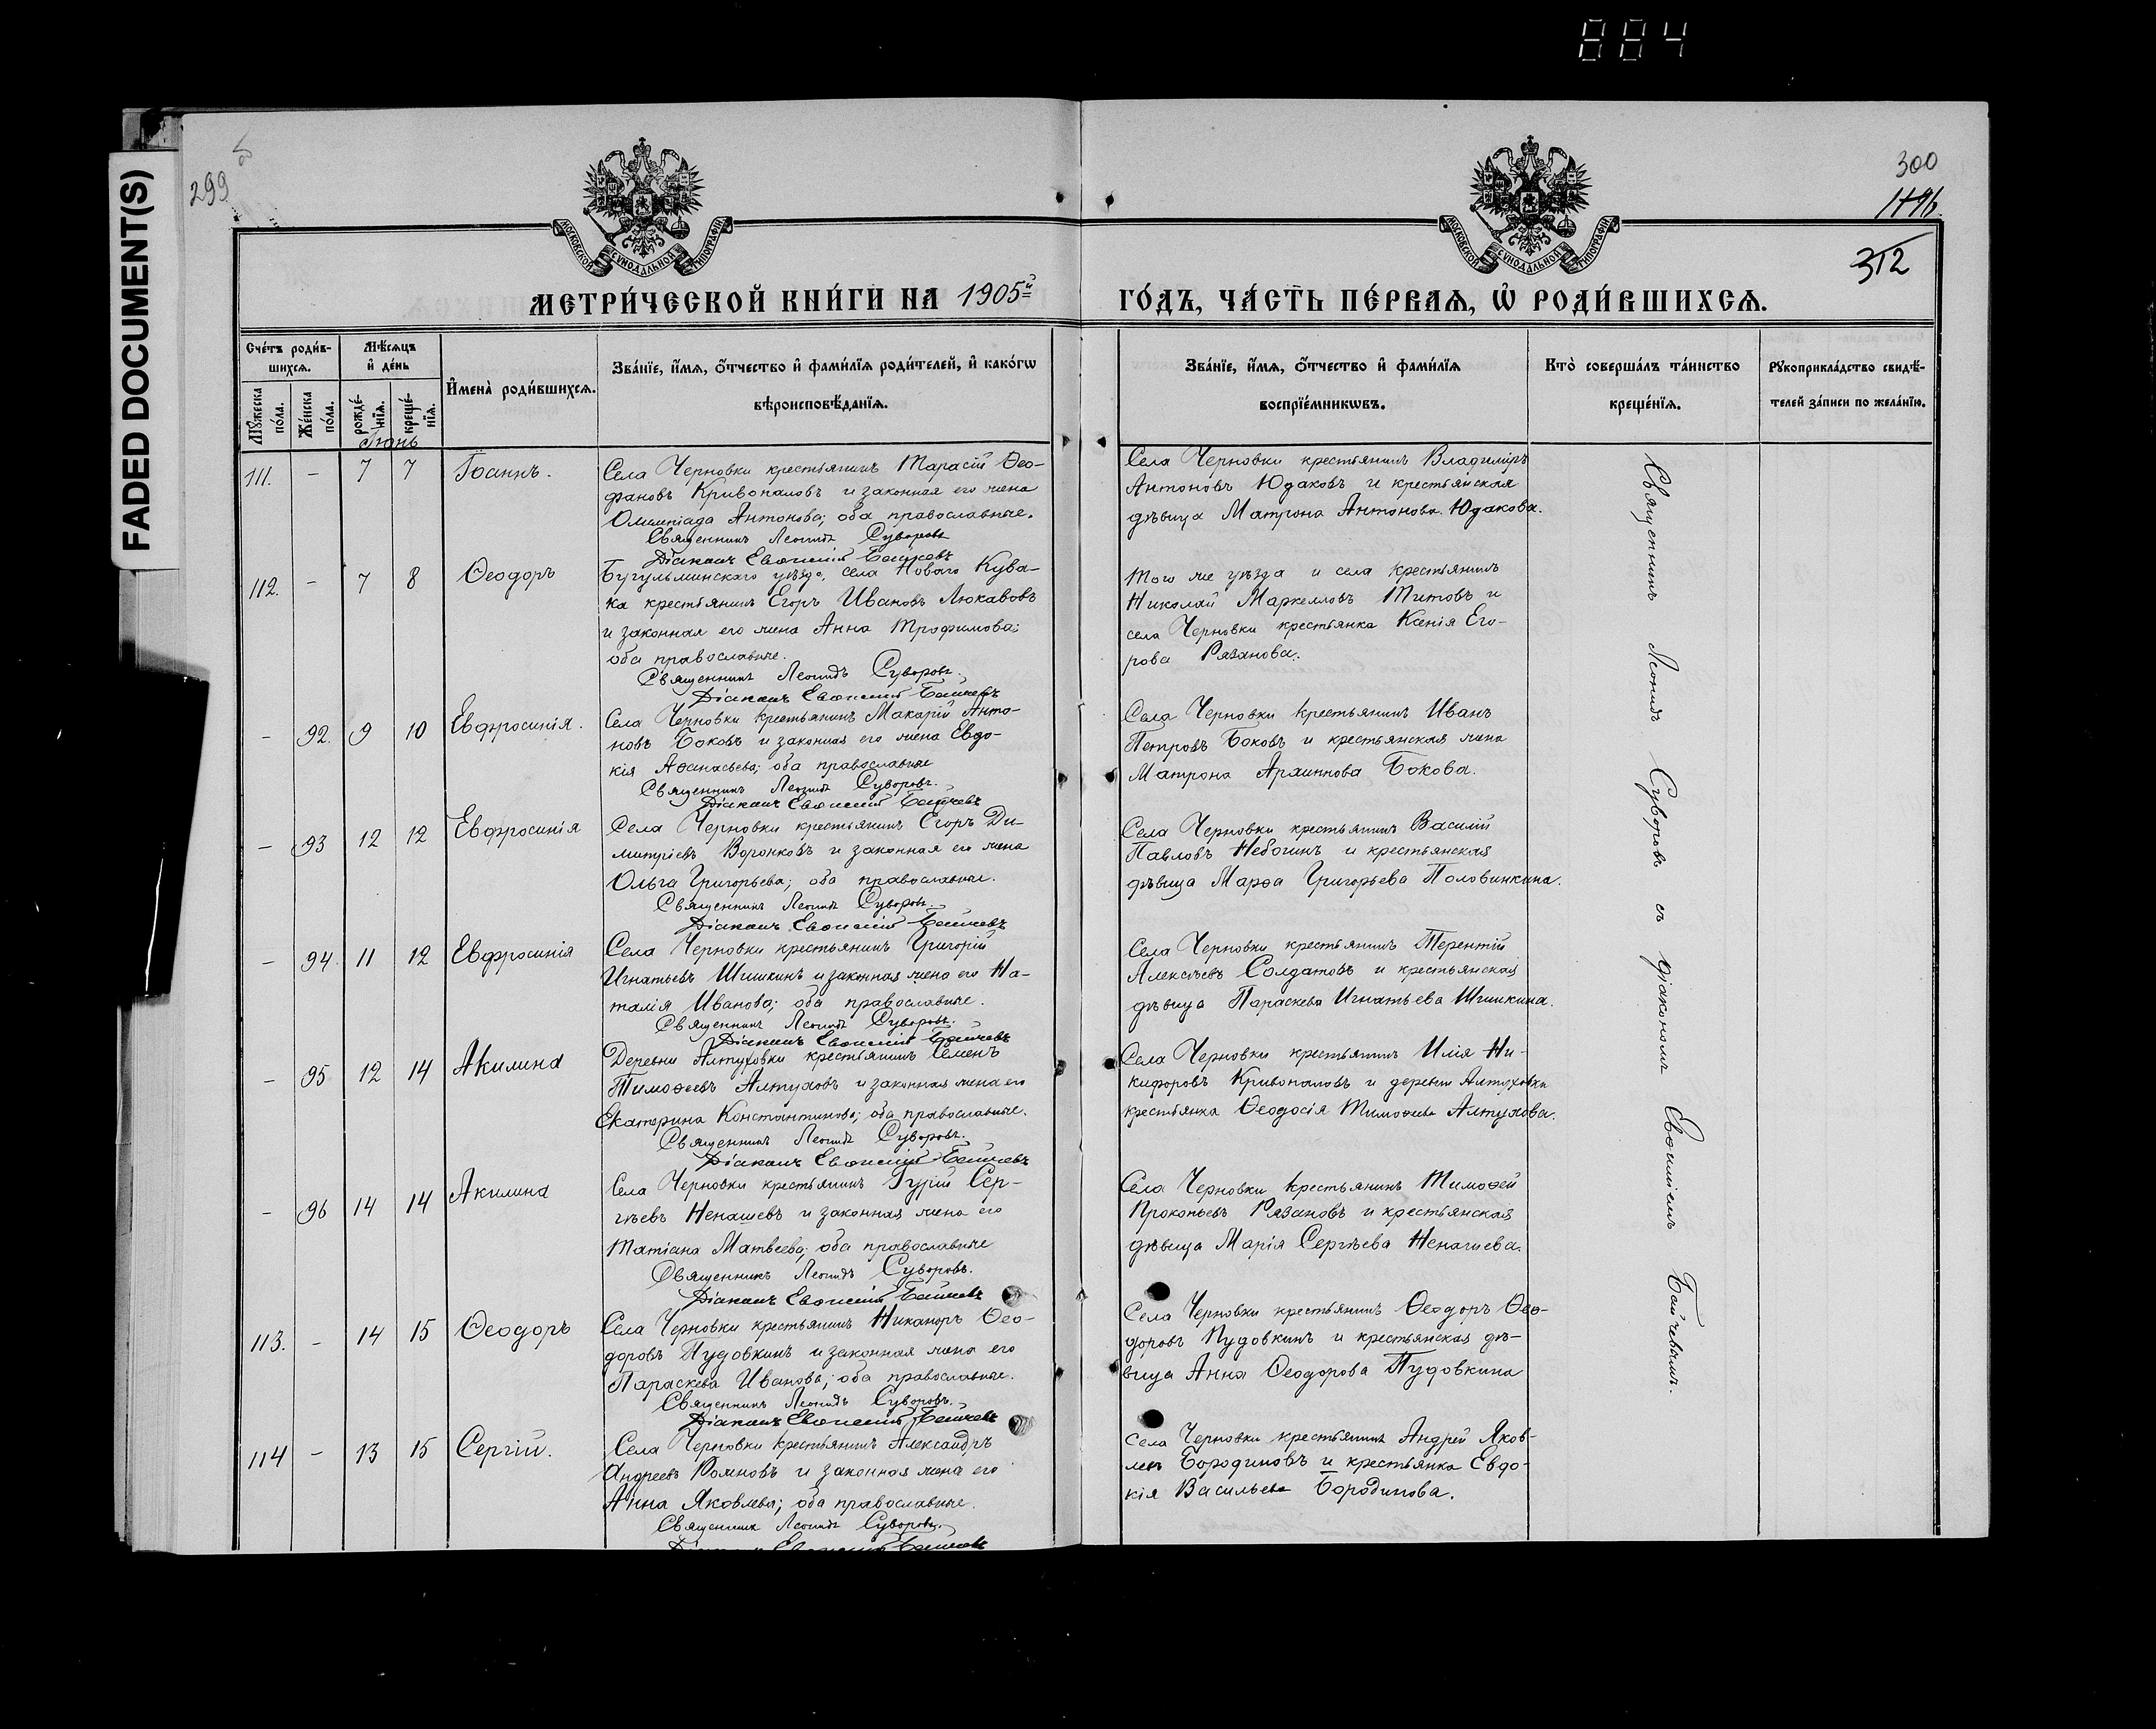 884
FADED DOCUMENT(S)
299
300
312
МОСКОВСКОЙ СѴНОДАЛЬНОЙ ТИПОГРАФІИ
МОСКОВСКОЙ СѴНОДАЛЬНОЙ ТИПОГРАФІИ
МЕТРИ́ЧЕСКОЙ КНИ́ГИ НА 1905й ГО́ДЪ, ЧА́СТЬ ПЕ́РВАѦ, Ѡ҆ РОДИ́ВШИХСѦ.
Сче́тъ роди́в-
шихсѧ.
Мꙋ́жеска по́ла.
Же́нска по́ла.
Мѣ́сѧцъ
и҆ де́нь
рожде́-
нїѧ.
креще́-
нїѧ.
И҆мена̀ роди́вшихсѧ.
Зва́нїе, и҆́мѧ, ѻ҆́тчество и҆ фами́лїѧ роди́телей, и҆ како́гѡ
вѣроисповѣ́данїѧ.
Зва́нїе, и҆́мѧ, ѻ҆́тчество и҆ фами́лїѧ
воспрїе́мникѡвъ.
Кто̀ соверша́лъ та́инство
креще́нїѧ.
Рꙋкоприкла́дство свидѣ́-
телей за́писи по жела́нїю.
Іюнь
111. - 7 7 Іоаннъ.
Села Черновки крестьянинъ Тарасій Ѳео-
фановъ Кривопаловъ и законная его жена
Олимпіада Антонова; оба православные.
Священникъ Леонидъ Суворовъ
Діаконъ Евѳимій Байчевъ
Села Черновки крестьянинъ Владиміръ
Антоновъ Юдаковъ и крестьянская
дѣвица Матрона Антонова Юдакова.
112. - 7 8 Ѳеодоръ
Бугульминскаго уѣзда, села Новаго Кува-
ка крестьянинъ Егоръ Ивановъ Люкавовъ
и законная его жена Анна Трофимова;
оба православные.
Священникъ Леонидъ Суворовъ.
Діаконъ Евѳимій Байчевъ
Того же уѣзда и села крестьянинъ
Николай Маркелловъ Титовъ и
села Черновки крестьянка Ксенія Его-
рова Рязанова.
- 92. 9 10 Евфросинія.
Села Черновки крестьянинъ Макарій Анто-
новъ Боковъ и законная его жена Евдо-
кія Аѳанасьева; оба православные
Священникъ Леонидъ Суворовъ.
Діаконъ Евѳимій Байчевъ
Села Черновки крестьянинъ Иванъ
Петровъ Боковъ и крестьянская жена
Матрона Архиппова Бокова.
- 93 12 12 Евфросинія
Села Черновки крестьянинъ Егоръ Ди-
митріевъ Воронковъ и законная его жена
Ольга Григорьева; оба православные.
Священникъ Леонидъ Суворовъ.
Діаконъ Евѳимій Байчевъ
Села Черновки крестьянинъ Василій
Павловъ Небогинъ и крестьянская
дѣвица Марѳа Григорьева Половинкина.
- 94. 11 12 Евфросинія
Села Черновки крестьянинъ Григорій
Игнатьевъ Шишкинъ и законная жена его На-
талія Иванова; оба православные.
Священникъ Леонидъ Суворовъ.
Діаконъ Евѳимій Байчевъ
Села Черновки крестьянинъ Терентій
Алексѣевъ Солдатовъ и крестьянская
дѣвица Параскева Игнатьева Шишкина.
- 95 12 14 Акилина
Деревни Алтуховки крестьянинъ Семенъ
Тимоѳеевъ Алтуховъ и законная жена его
Екатерина Константинова; оба православные.
Священникъ Леонидъ Суворовъ.
Діаконъ Евѳимій Байчевъ
Села Черновки крестьянинъ Илія Ни-
кифоровъ Кривопаловъ и деревни Алтуховки
крестьянка Ѳеодосія Тимоѳеева Алтухова.
- 96 14 14 Акилина
Села Черновки крестьянинъ Гурій Сер-
гѣевъ Ненашевъ и законная жена его
Татіана Матвеева; оба православные
Священникъ Леонидъ Суворовъ.
Діаконъ Евѳимій Байчевъ
Села Черновки крестьянинъ Тимоѳей
Прокопьевъ Рязановъ и крестьянская
дѣвица Марія Сергѣева Ненашева.
113. - 14 15 Ѳеодоръ
Села Черновки крестьянинъ Никаноръ Ѳео-
доровъ Пудовкинъ и законная жена его
Параскева Иванова; оба православные.
Священникъ Леонидъ Суворовъ.
Діаконъ Евѳимій Байчевъ
Села Черновки крестьянинъ Ѳеодоръ Ѳео-
доровъ Пудовкинъ и крестьянская дѣ-
вица Анна Ѳеодорова Пудовкина
114 - 13 15 Сергій.
Села Черновки крестьянинъ Александръ
Андреевъ Романовъ и законная жена его
Анна Яковлева; оба православные.
Священникъ Леонидъ Суворовъ.
Діаконъ Евѳимій Байчевъ
Села Черновки крестьянинъ Андрей Яков-
левъ Бородиновъ и крестьянка Евдо-
кія Васильева Бородинова.
Священникъ Леонидъ Суворовъ съ діакономъ Евѳиміемъ Байчевымъ.